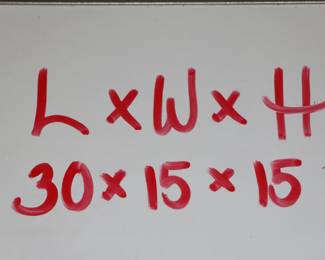 L x W x H
30 x 15 x 15